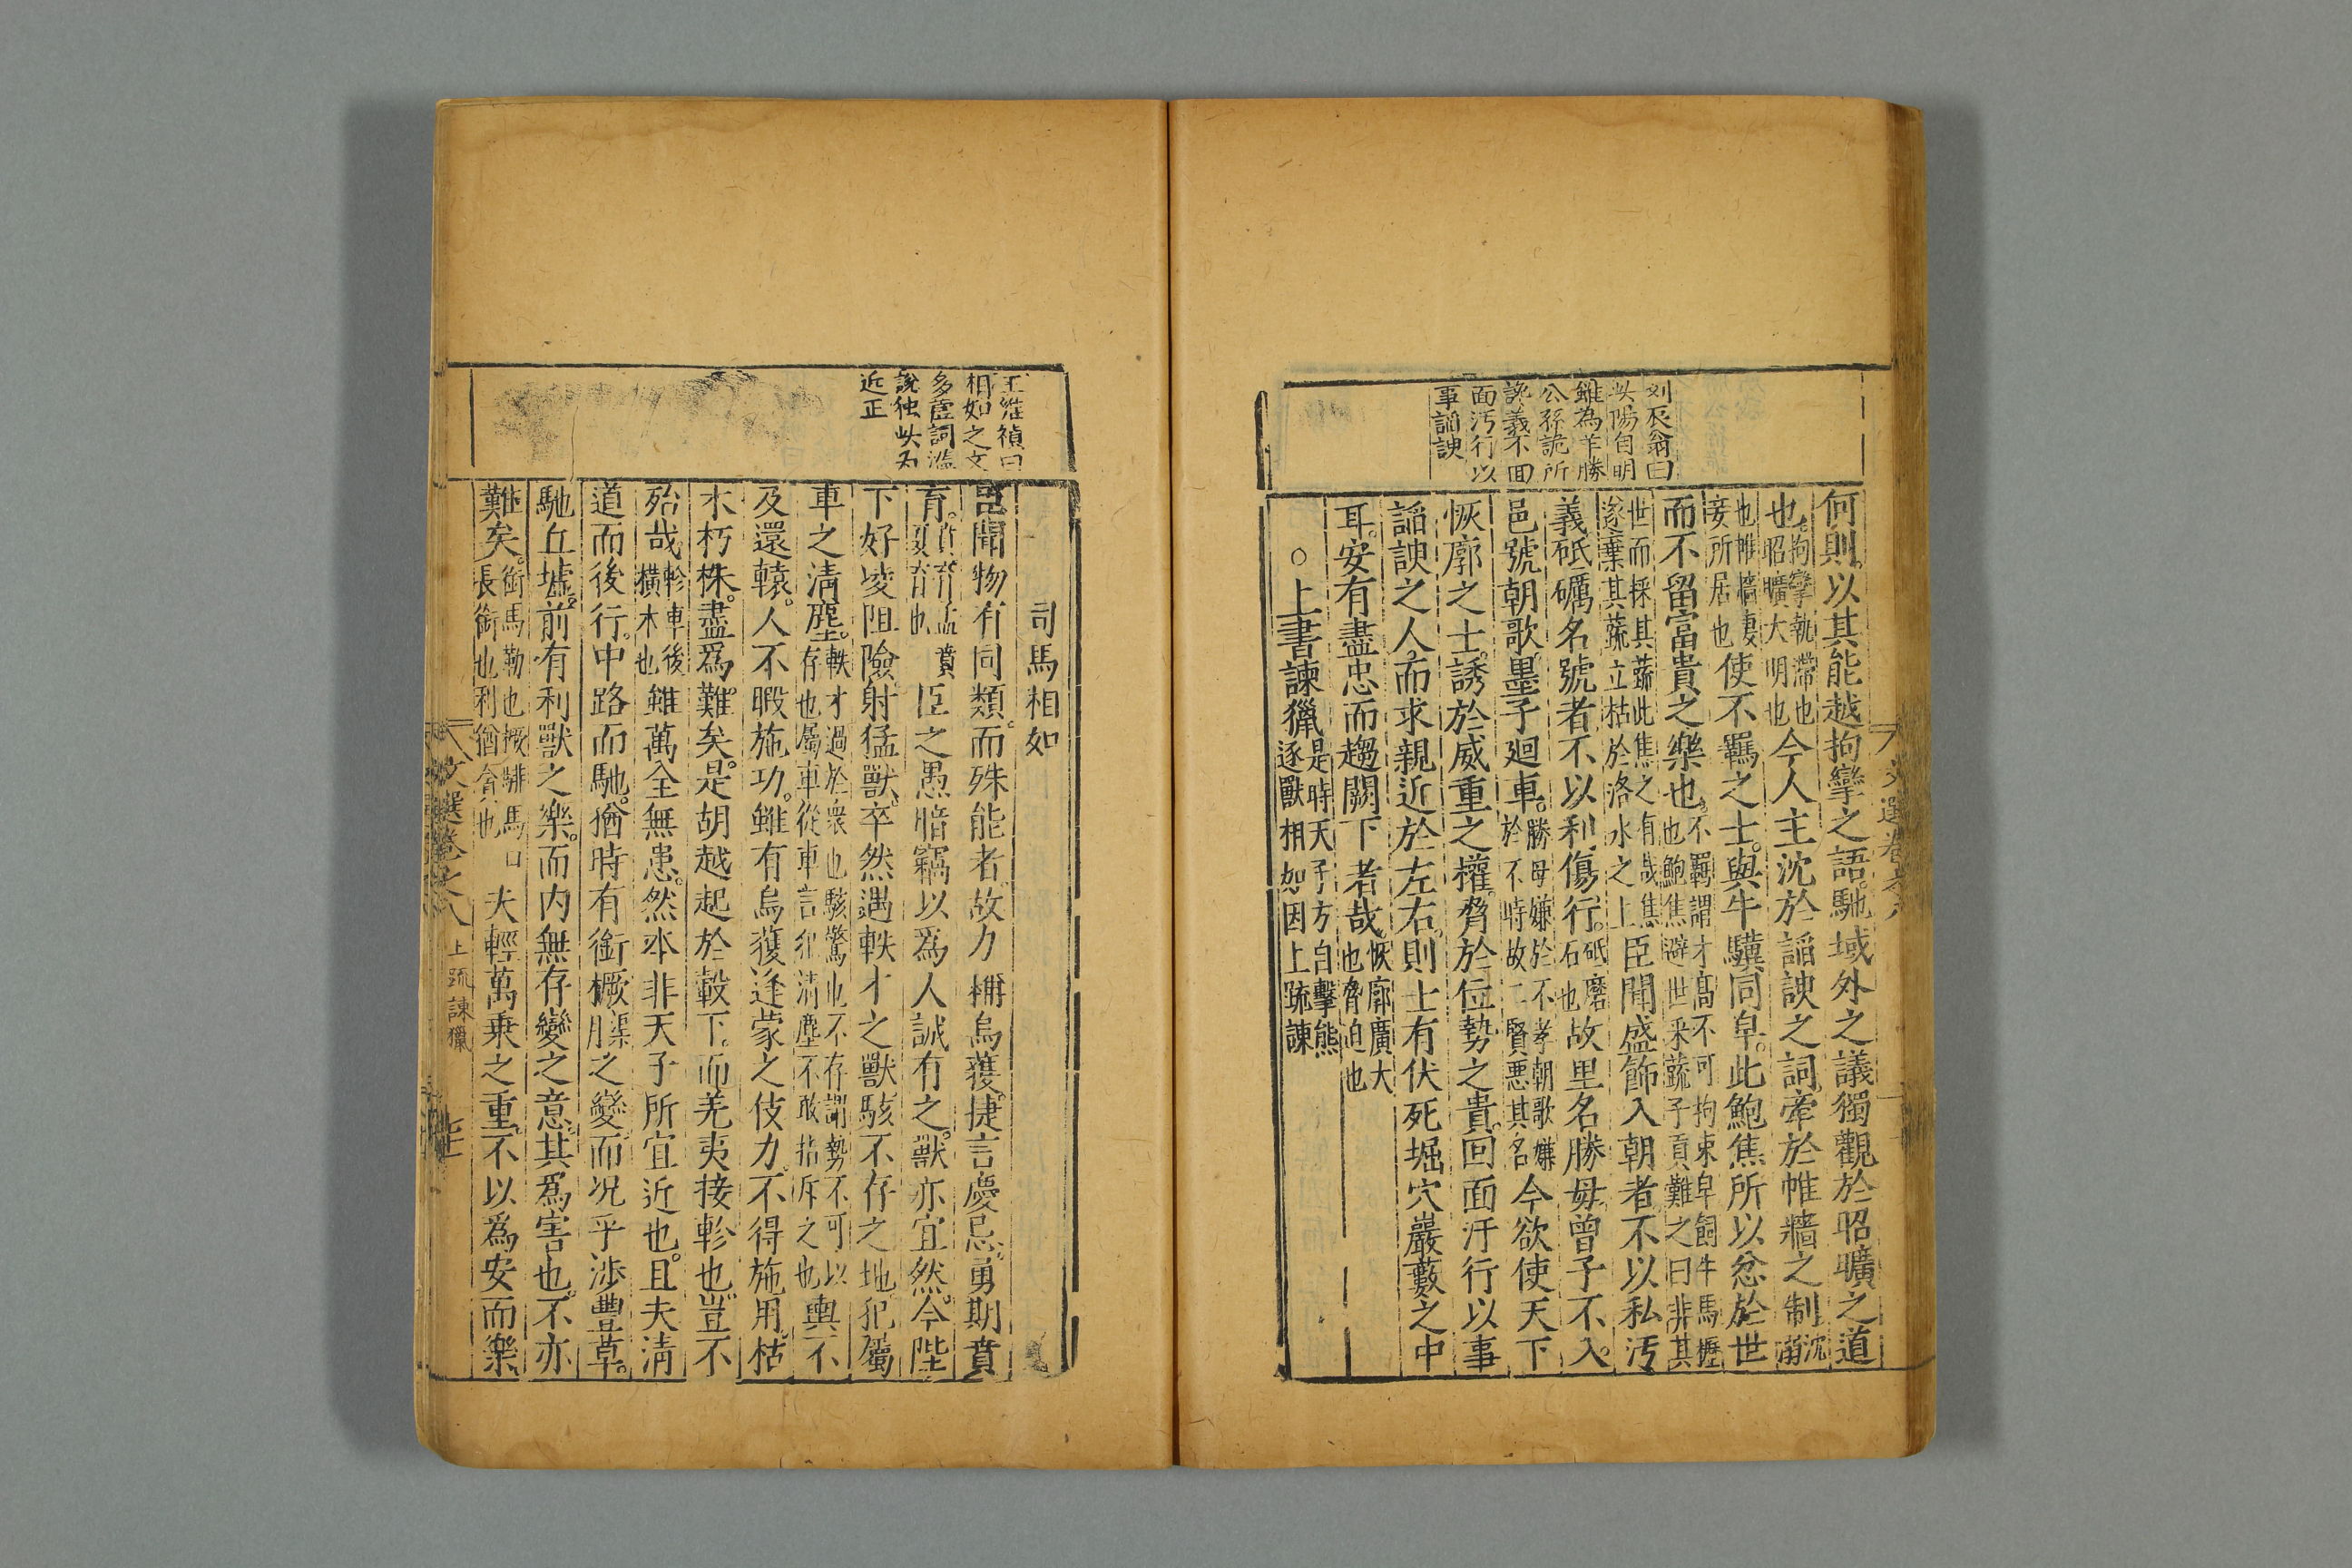 劉辰翁曰
此陽自明
雖為羊勝
公孫詭所
讒義不回
面汚行以
事諂諛
何則以其能越拘攣之語馳域外之議獨觀於昭曠之道
也拘攣執滯也昭曠大明也今人主沈於諂諛之詞牽於帷牆之制沈溺
也帷牆妻妾所居也使不羈之士與牛驥同皁此鮑焦所以忿於世
而不留富貴之樂也不羈謂才高不可拘束皁飼牛馬櫪也鮑焦避世采蔬子貢難之曰非其
世而採其蔬此焦之有哉焦遂棄其蔬立枯於洛水之上臣聞盛飾入朝者不以私汚
義砥礪名號者不以利傷行砥磨石也故里名勝毋曾子不入
邑號朝歌墨子廻車勝母嫌於不孝朝歌嫌於不時故二賢悪其名今欲使天下
恢廓之士誘於威重之權脅於位勢之貴回面汙行以事
諂諛之人而求親近於左右則士有伏死堀穴巖藪之中
耳安有盡忠而趨闕下者哉恢廓廣大也脅迫也
○上書諫獵是時天子方自擊熊逐獸相如因上疏諫
文選卷之八
王維禎曰
相如之文
多虛詞濫
說独此为
近正
司馬相如
臣聞物有同類而殊能者故力稱烏獲捷言慶忌勇期賁
育賁育孟賁夏育也臣之愚暗竊以爲人誠有之獸亦宜然今陛
下好凌阻險射猛獸卒然遇軼才之獸駭不存之地犯屬
車之清塵軼才過於衆也駭驚也不存謂勢不可以存也屬車從車言犯清塵不敢指斥之也輿不
及還轅人不暇施功雖有烏獲逢蒙之伎力不得施用枯
木朽株盡爲難矣是胡越起於轂下而羌夷接軫也豈不
殆哉軫車後橫木也雖萬全無患然本非天子所宜近也且夫清
道而後行中路而馳猶時有銜橛之變而况乎涉豐草
馳丘墟前有利獸之樂而内無存變之意其爲害也不亦
難矣銜馬勒也橛騑馬口長銜也利猶貪也夫輕萬乗之重不以爲安而樂
文選卷之八
上疏諫獵